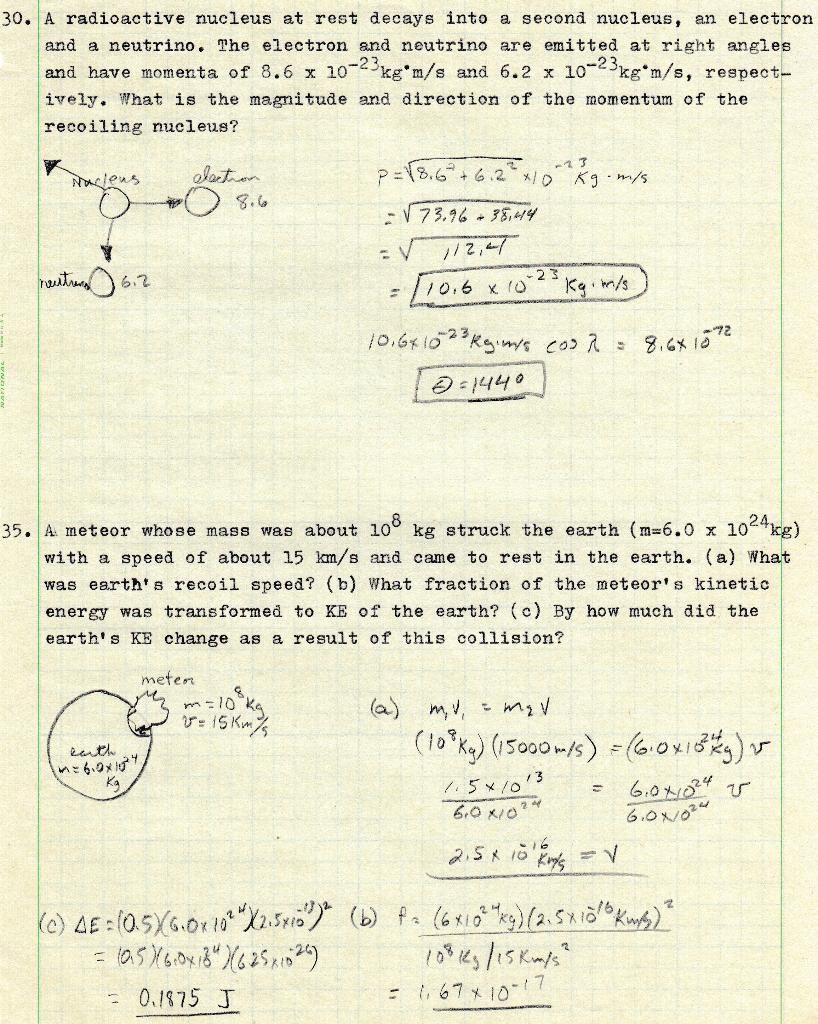 30. A radioactive nucleus at rest decays into a second nucleus, an electron
and a neutrino. The electron and neutrino are emitted at right angles
and have momenta of 8.6 x 10⁻²³kg·m/s and 6.2 x 10⁻²³kg·m/s, respect-
ively. What is the magnitude and direction of the momentum of the
recoiling nucleus?
Nucleus
electron
8.6
neutrino
6.2
P = √8.6² + 6.2² x10⁻²³ Kg·m/s
= √73.96 + 38.44
= √112.4
= 10.6 x 10⁻²³ Kg·m/s
10.6x10⁻²³ Kg·m/s cos λ = 8.6x10⁻⁷²
θ = 144°
NATIONAL
35. A meteor whose mass was about 10⁸ kg struck the earth (m=6.0 x 10²⁴kg)
with a speed of about 15 km/s and came to rest in the earth. (a) What
was earth's recoil speed? (b) What fraction of the meteor's kinetic
energy was transformed to KE of the earth? (c) By how much did the
earth's KE change as a result of this collision?
meteor
m=10⁸ Kg
v=15Km/s
earth
m=6.0x10²⁴
Kg
(a) m₁v₁ = m₂v
(10⁸Kg)(15000m/s) = (6.0x10²⁴Kg) v
1.5x10¹³ = 6.0x10²⁴ v
6.0x10²⁴ 6.0x10²⁴
2.5 x 10⁻¹⁶ Km/s = v
(c) ΔE = (0.5)(6.0x10²⁴)(2.5x10⁻¹³)²
= (0.5)(6.0x10²⁴)(6.25x10⁻²⁶)
= 0.1875 J
(b) f = (6x10²⁴kg)(2.5x10⁻¹⁶Km/s)²
10⁸Kg/15Km/s²
= 1.67 x 10⁻¹⁷